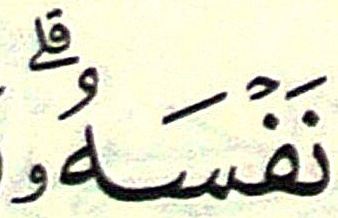 نَفْسَهُۥۗ